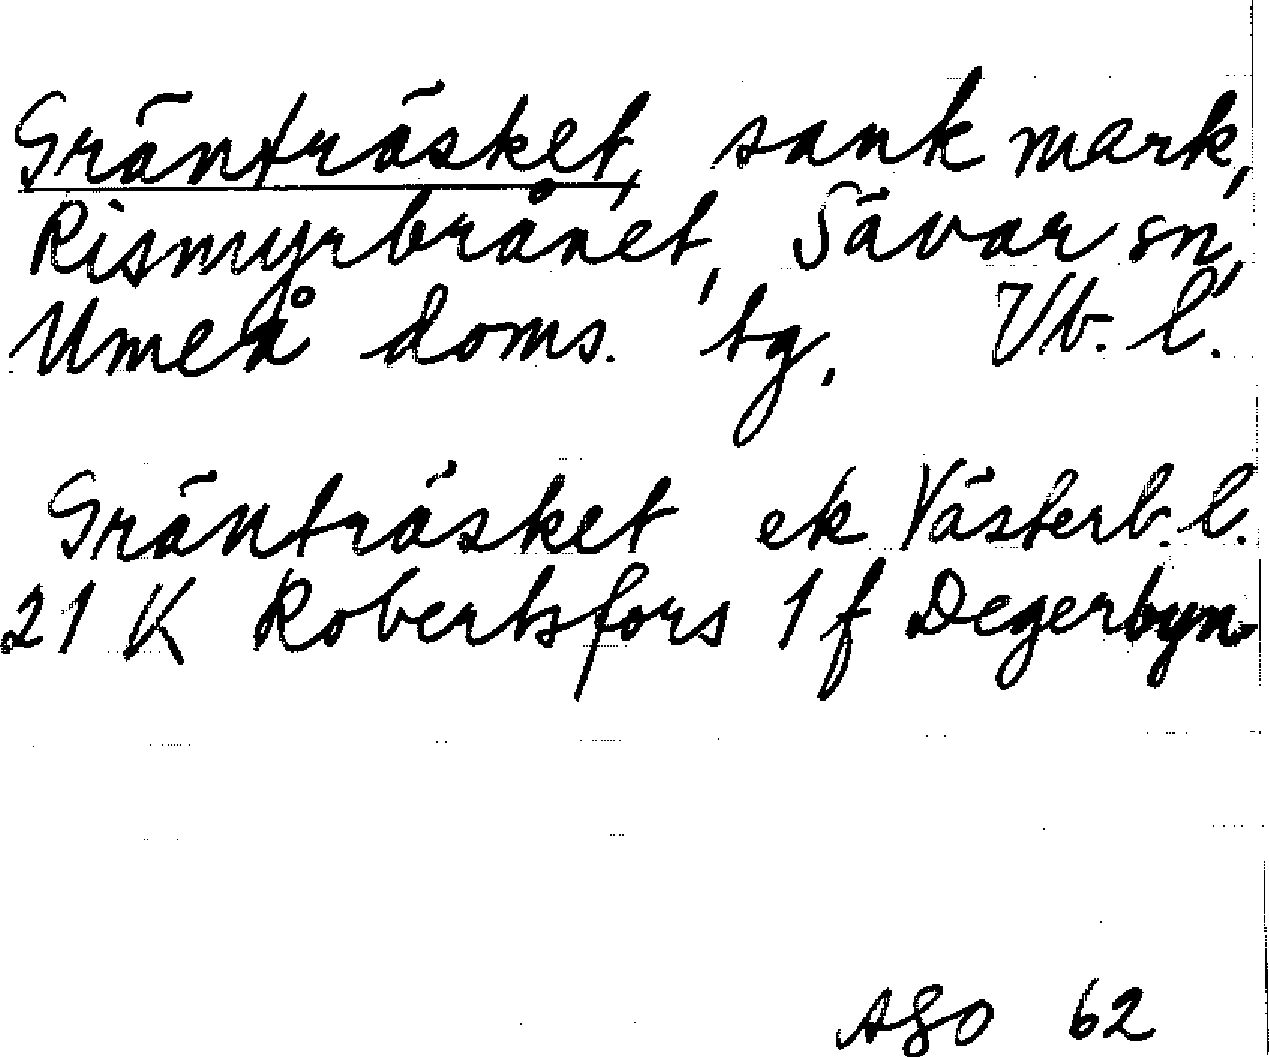 Gränträsket, sank mark,
Rismyrbrånet, Sävar sn,
Umeå doms. tg, Vb. l.
Gränträsket ek Västerb. l.
21 K Robertsfors 1 f Degerbyn.
AGO 62